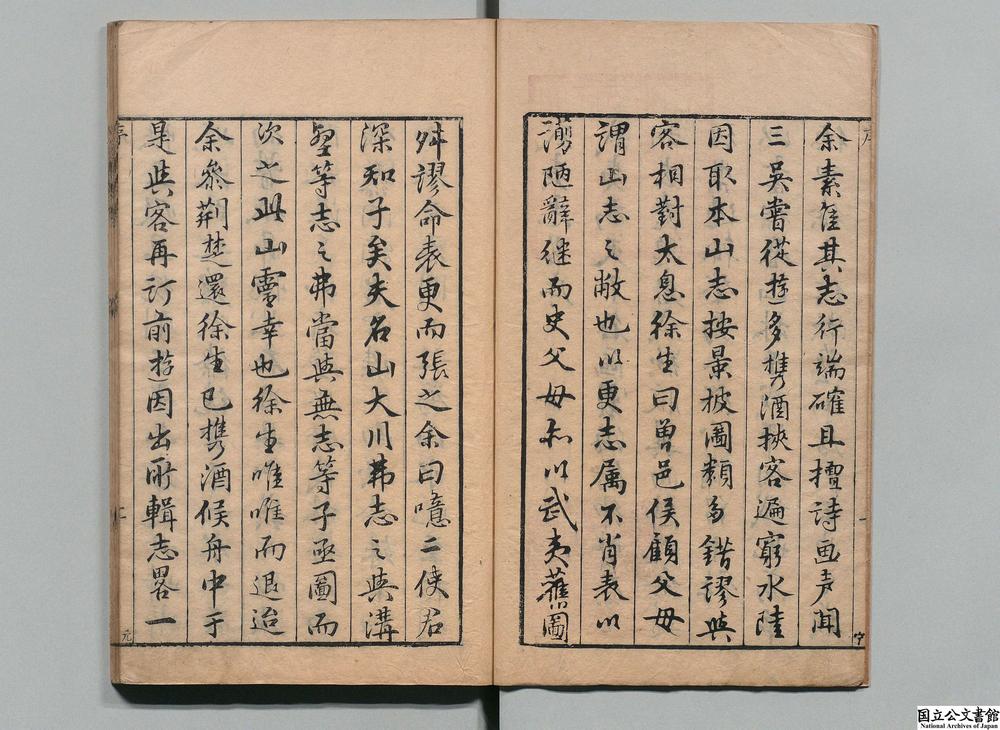 序
余素隹其志行端確且擅诗画声闻
三吴嘗從遊多攜酒挾客遍窮水陸
因取本山志按景披圖類多錯謬與
客相對太息徐生曰曽邑侯顧父母
謂山志之敝也以更志属不肖表以
谫陋辭继而史父母亦以武夷舊圖
舛謬命表更而張之余曰噫二使君
深知子矣夫名山大川弗志之與溝
壑等志之弗當與無志等子亟圖而
次之此山靈幸也徐生唯唯而退迨
余参荆楚還徐生已攜酒候舟中于
是與客再订前遊因出所輯志畧一
序
二
元
国立公文書館
National Archives of Japan